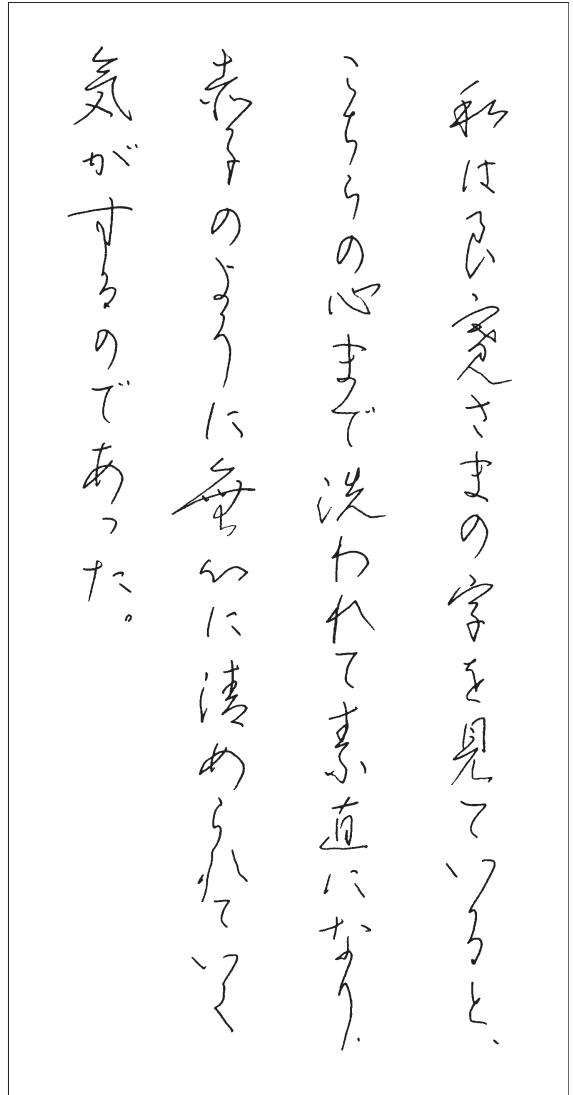 私は良寛さまの字を見ていると、
こちらの心まで洗われて素直になり、
赤子のように無心に清められていく
気がするのであった。